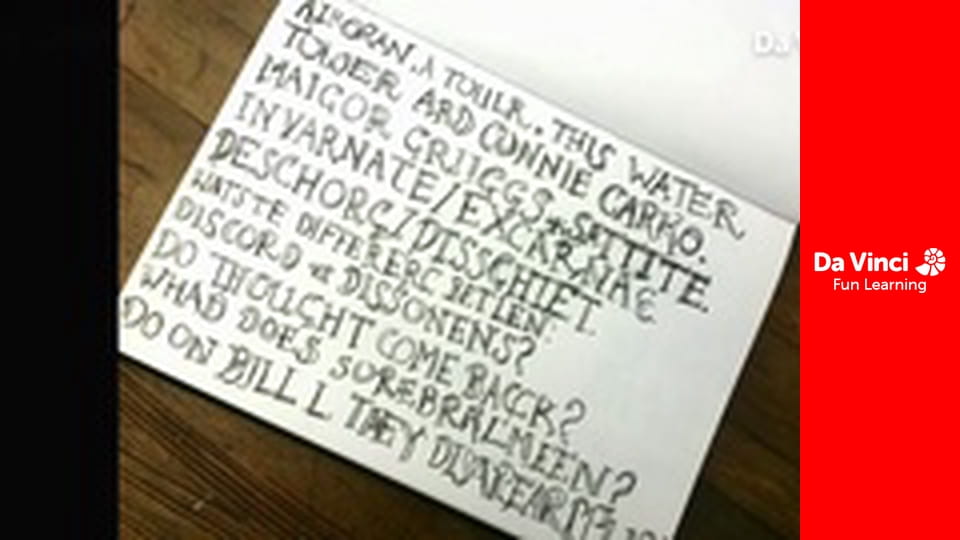 A TOULR. THIS WATER
TOWER ARD CONNIE CARKO.
MAIGOR GRIIGGS + SATTITE.
INVARNATE/EXCARNATE
DESCHORG/DISSCHIET.
WATSTE DIFFERERC BETLEN
DISCORD DISSONENS?
DO THOUGHT COME BACCK?
WHAD DOES SOREBRALMEEN?
DO ON BILL L THEY
Da Vinci
Fun Learning